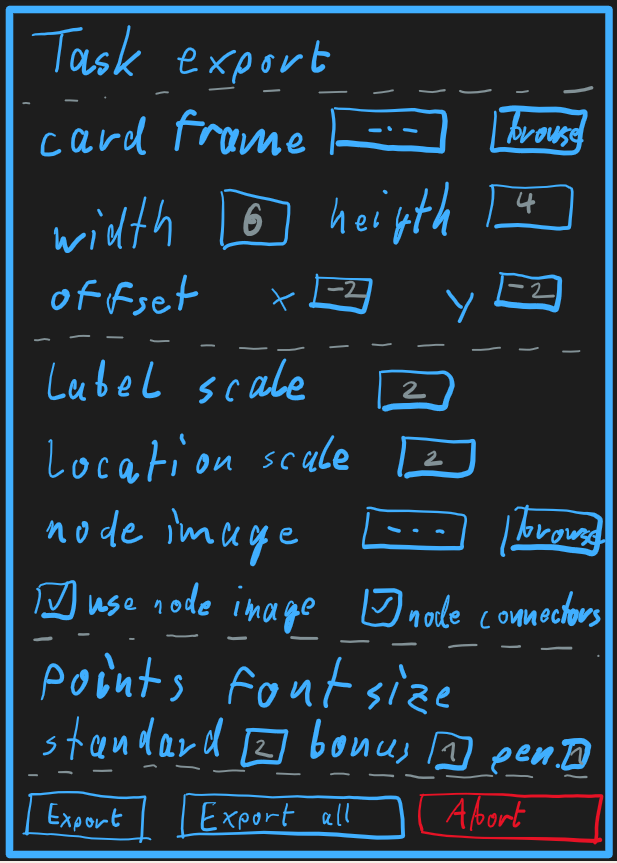 Task export
card frame --- browse
width 6 heigth 4
offset x -2 y -2
Label scale 2
Location scale 2
node image --- browse
use node image node connectors
Points font size
standard 2 bonus 1 pen. 1
Export Export all Abort